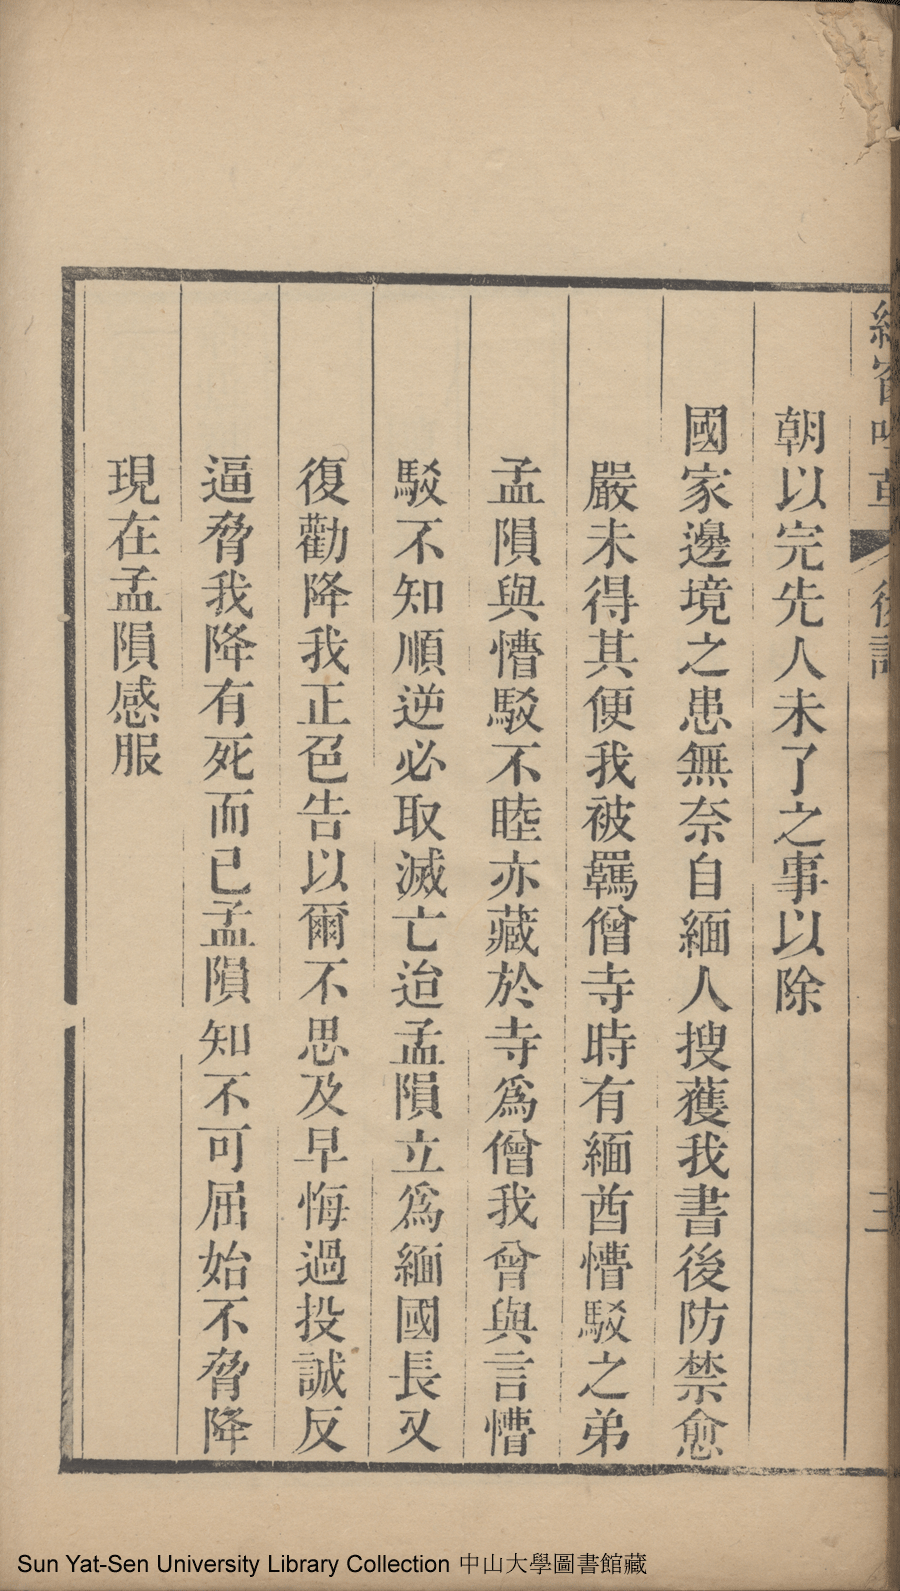 朝以完先人未了之事以除
國家邊境之患無奈自緬人搜獲我書後防禁愈
嚴未得其便我被羈僧寺時有緬酋懵駁之弟
孟隕與懵駁不睦亦藏於寺爲僧我曾與言懵
駁不知順逆必取滅亡迨孟隕立爲緬國長又
復勸降我正色告以爾不思及早悔過投誠反
逼脅我降有死而已孟隕知不可屈始不脅降
現在孟隕感服
Sun Yat-Sen University Library Collection 中山大學圖書館藏